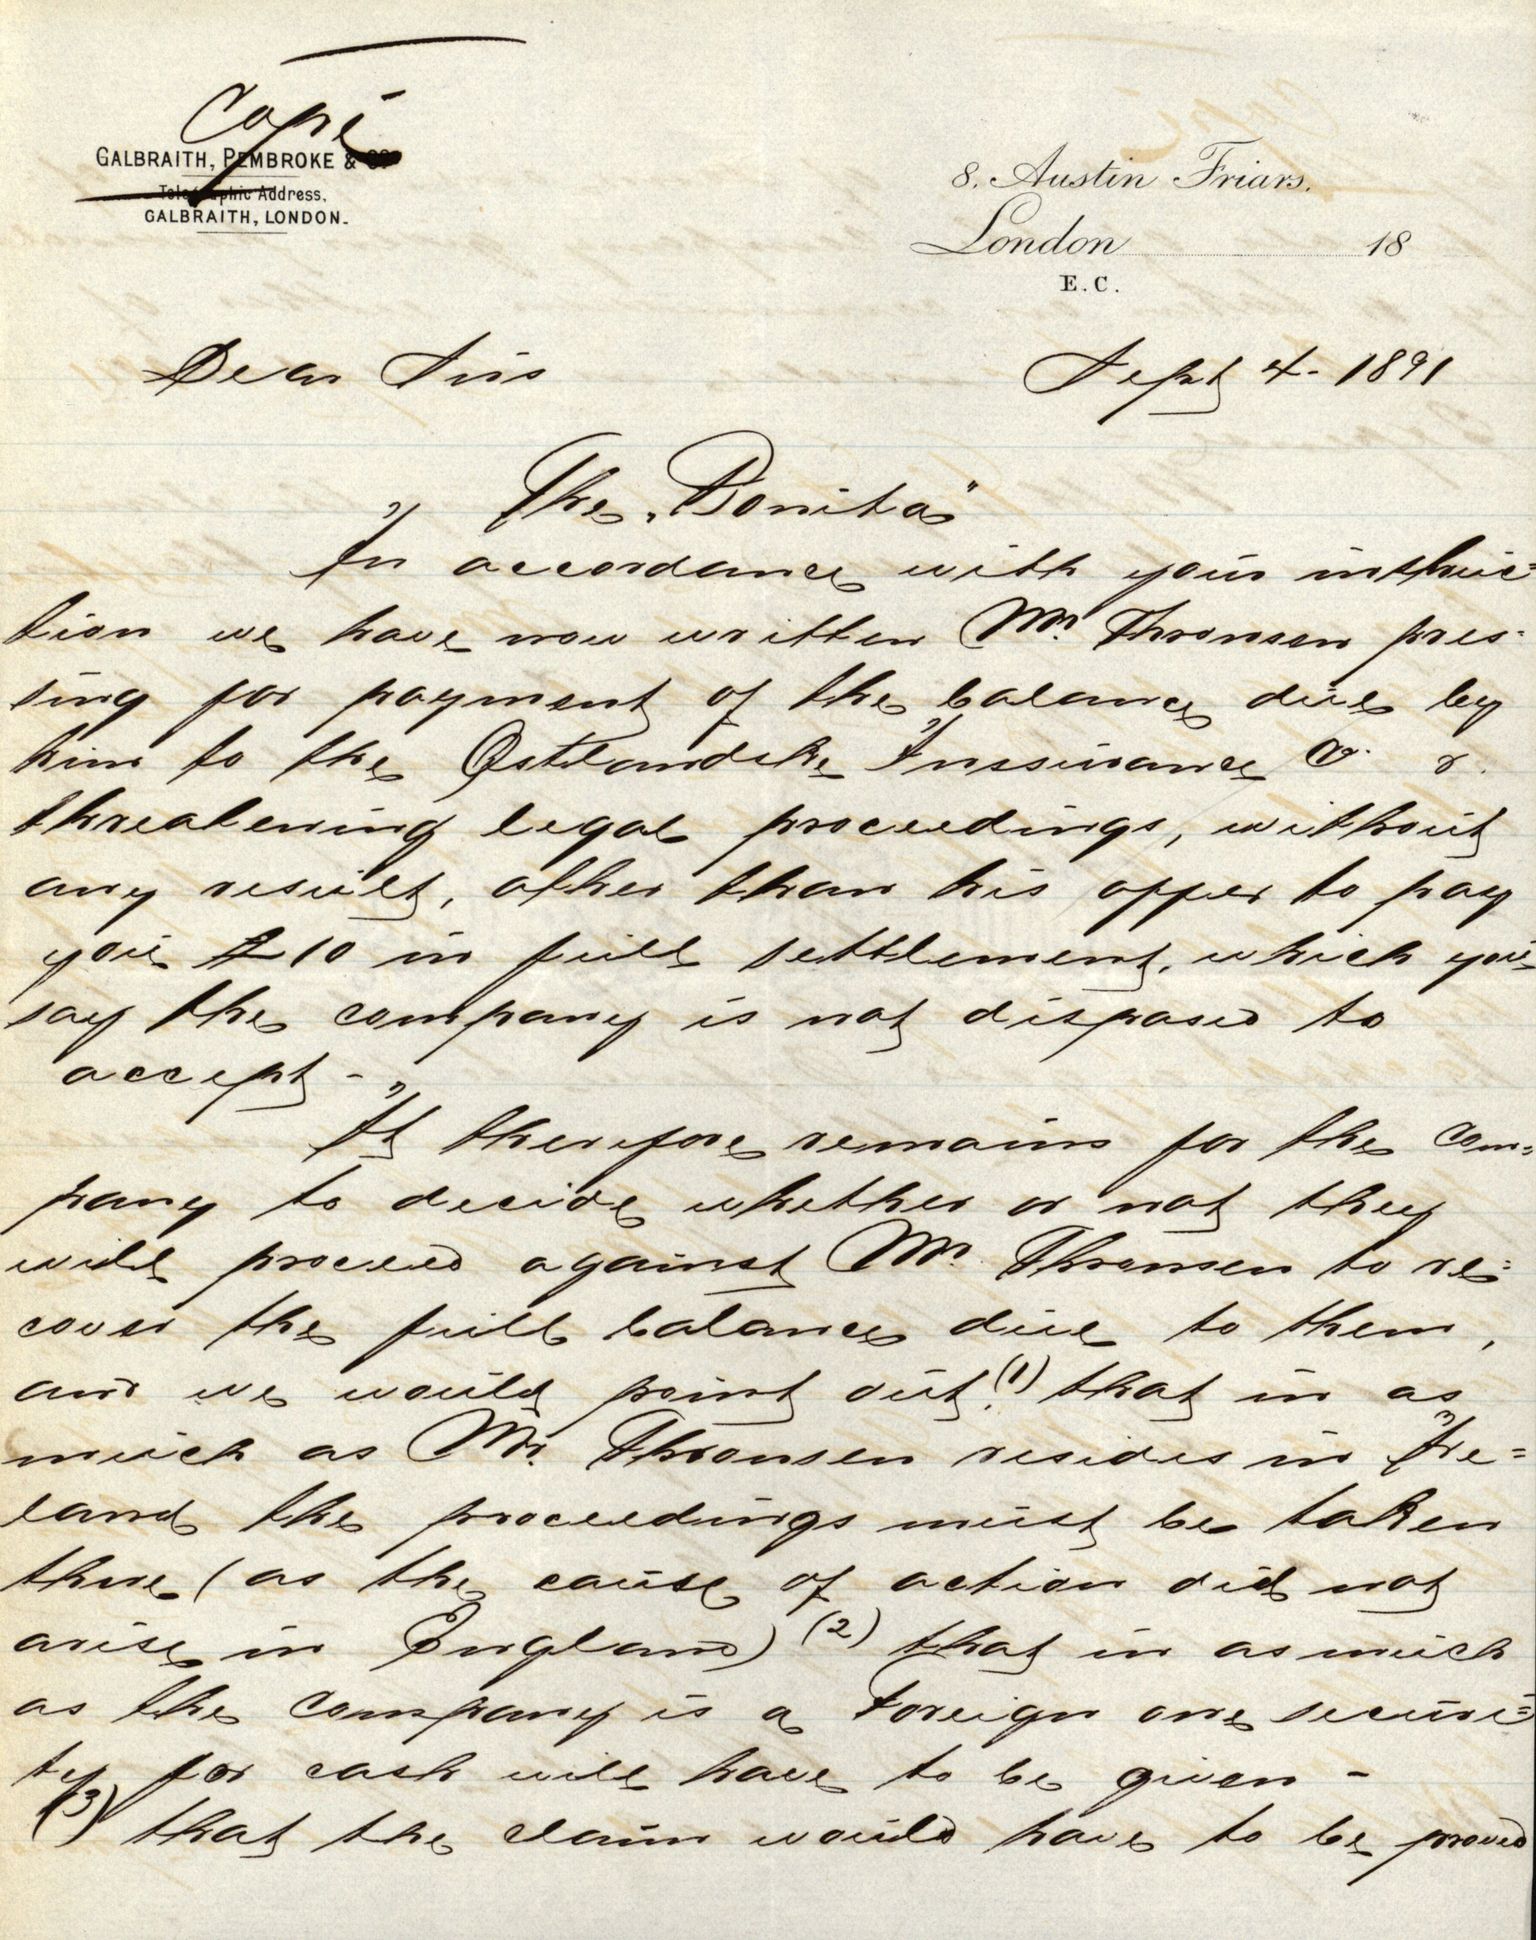 Copi
GALBRAITH, PEMBROKE & Co
Telegraphic Address,
GALBRAITH, LONDON.
8, Austin Friars,
London 18
E.C.
Dear Sirs
Sept 4. 1891
The "Bonita"
In accordance with your instruc=
tion we have now written Mr. Thronsen pres=
sing for payment of the balance due by
him to the Ostlandske Inssurance Co. &.
threatening legal proceedings, without
any result, other than his offer to pay
you £10 in full settlement, which you
say the company is not disposed to
accept -
It therefore remains for the com=
pany to decide whether or not they
will proceed against Mr. Thronsen to re=
cover the full balance due to them,
and we would point out. (1) that in as
much as Mr. Thronsen resides in Ire=
land the proceedings must be taken
there (as the cause of action did not
arise in England) (2) that in as much
as the company is a Foreign one securi=
ty for cash will have to be given -
(3) that the claim would have to be proved